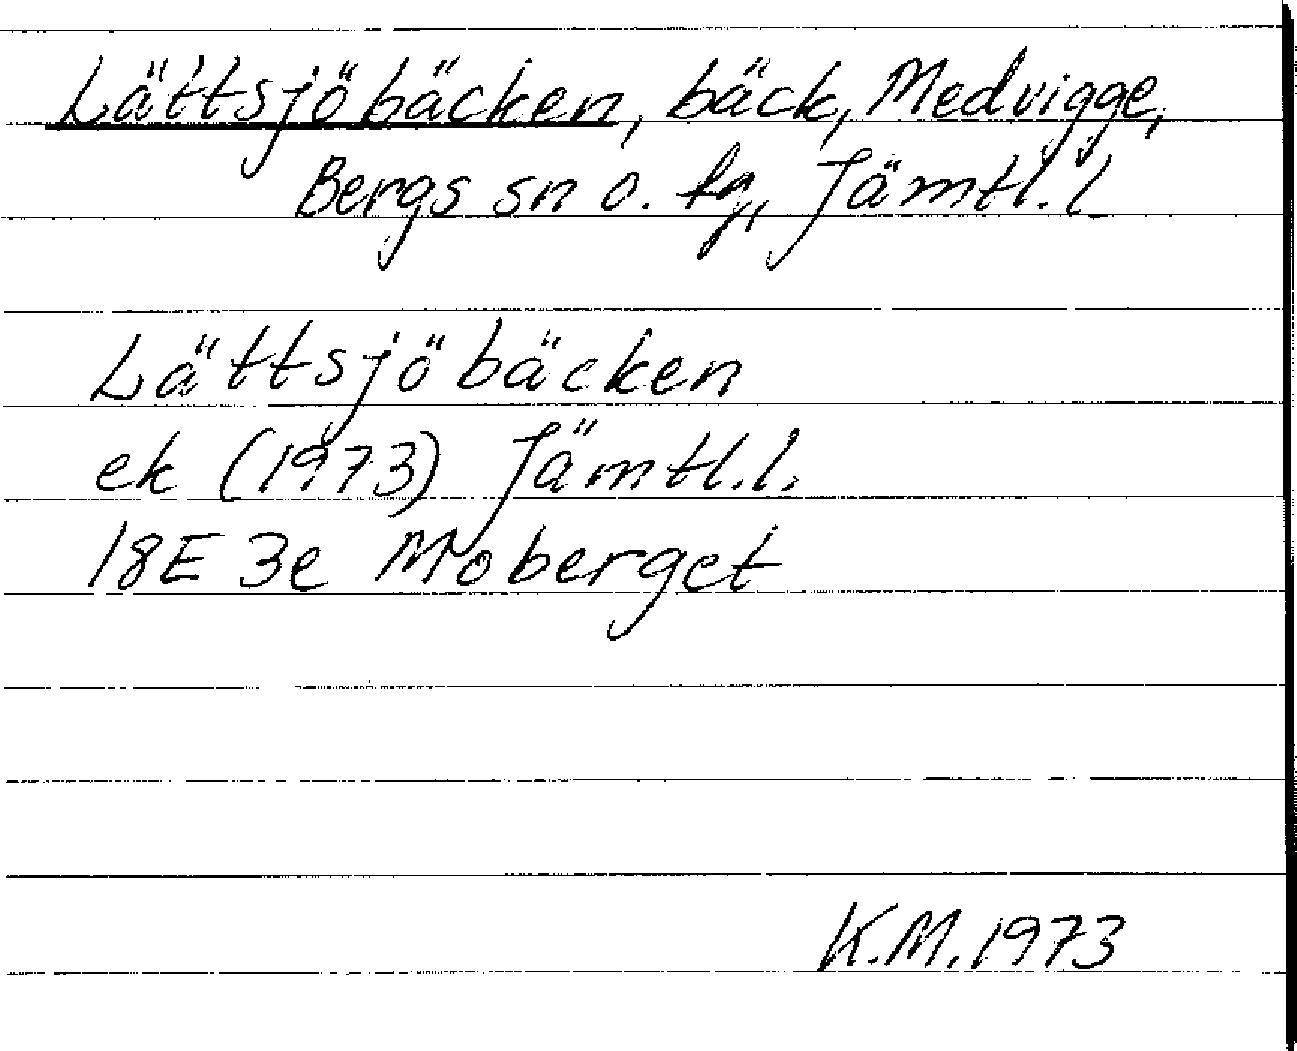 Lättsjöbäcken, bäck, Medvigge,
Bergs sn o. tg, Jämtl. l
Lättsjöbäcken
ek (1973) Jämtl. l.
18E 3e Moberget
K.M. 1973